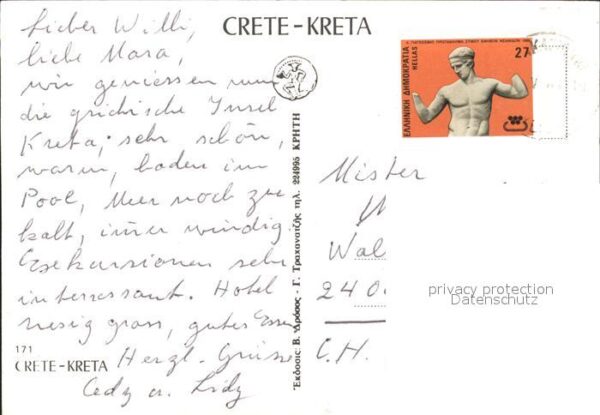 CRETE-KRETA
Lieber Willi,
liebe Mara,
wir geniessen nun
die grichische Insel
Kreta; sehr schön,
warm, baden im
Pool, Meer noch zu
kalt, immer windig.
Exkursionen sehr
interressant. Hotel
riesig gross, gutes Essen
Herzl. Grüsse
171
CRETE-KRETA
Εκδοσις: Β. Δρόσος - Γ. Τραχανατζής τηλ. 224995 ΚΡΗΤΗ
ΕΛΛΗΝΙΚΗ ΔΗΜΟΚΡΑΤΙΑ
HELLAS
27
Mister
Wal
24
C.H.
privacy protection
Datenschutz